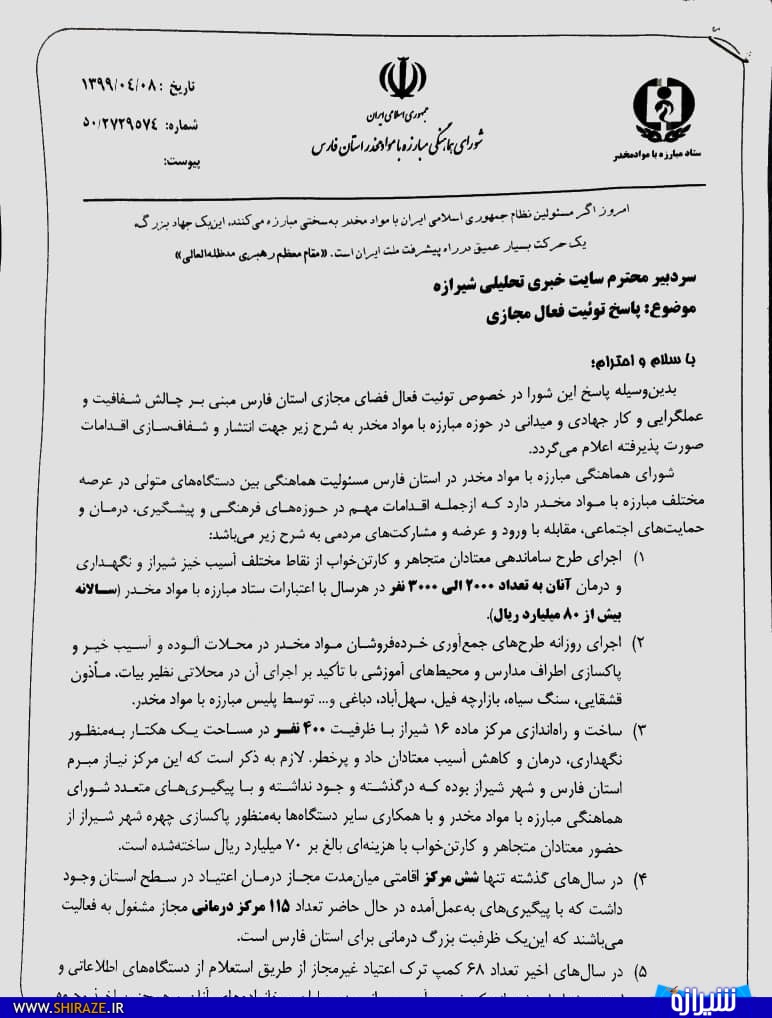 تاریخ : ۱۳۹۹/۰۴/۰۸
شماره: ۵۰/۲۷۲۹۵۷۴
پیوست:
جمهوری اسلامی ایران
شورای هماهنگی مبارزه با مواد مخدر استان فارس
ستاد مبارزه با مواد مخدر
امروز اگر مسئولین نظام جمهوری اسلامی ایران با مواد مخدر به‌سختی مبارزه می‌کنند، این‌یک جهاد بزرگ،
یک حرکت بسیار عمیق در راه پیشرفت ملت ایران است. «مقام معظم رهبری مدظله‌العالی»
سردبیر محترم سایت خبری تحلیلی شیرازه
موضوع: پاسخ توئیت فعال مجازی
با سلام و احترام؛
بدین‌وسیله پاسخ این شورا در خصوص توئیت فعال فضای مجازی استان فارس مبنی بر چالش شفافیت و
عملگرایی و کار جهادی و میدانی در حوزه مبارزه با مواد مخدر به شرح زیر جهت انتشار و شفاف‌سازی اقدامات
صورت پذیرفته اعلام می‌گردد.
شورای هماهنگی مبارزه با مواد مخدر در استان فارس مسئولیت هماهنگی بین دستگاه‌های متولی در عرصه
مختلف مبارزه با مواد مخدر دارد که ازجمله اقدامات مهم در حوزه‌های فرهنگی و پیشگیری، درمان و
حمایت‌های اجتماعی، مقابله با ورود و عرضه و مشارکت‌های مردمی به شرح زیر می‌باشد:
۱) اجرای طرح ساماندهی معتادان متجاهر و کارتن‌خواب از نقاط مختلف آسیب خیز شیراز و نگهداری
و درمان آنان به تعداد ۲۰۰۰ الی ۳۰۰۰ نفر در هرسال با اعتبارات ستاد مبارزه با مواد مخدر (سالانه
بیش از ۸۰ میلیارد ریال).
۲) اجرای روزانه طرح‌های جمع‌آوری خرده‌فروشان مواد مخدر در محلات آلوده و آسیب خیز و
پاکسازی اطراف مدارس و محیط‌های آموزشی با تأکید بر اجرای آن در محلاتی نظیر بیات، مأذون
قشقایی، سنگ سیاه، بازارچه فیل، سهل‌آباد، دباغی و... توسط پلیس مبارزه با مواد مخدر.
۳) ساخت و راه‌اندازی مرکز ماده ۱۶ شیراز با ظرفیت ۴۰۰ نفر در مساحت یک هکتار به‌منظور
نگهداری، درمان و کاهش آسیب معتادان حاد و پرخطر. لازم به ذکر است که این مرکز نیاز مبرم
استان فارس و شهر شیراز بوده که درگذشته و جود نداشته و با پیگیری‌های متعدد شورای
هماهنگی مبارزه با مواد مخدر و با همکاری سایر دستگاه‌ها به‌منظور پاکسازی چهره شهر شیراز از
حضور معتادان متجاهر و کارتن‌خواب با هزینه‌ای بالغ بر ۷۰ میلیارد ریال ساخته‌شده است.
۴) در سال‌های گذشته تنها شش مرکز اقامتی میان‌مدت مجاز درمان اعتیاد در سطح استان وجود
داشت که با پیگیری‌های به‌عمل‌آمده در حال حاضر تعداد ۱۱۵ مرکز درمانی مجاز مشغول به فعالیت
می‌باشند که این‌یک ظرفیت بزرگ درمانی برای استان فارس است.
۵) در سال‌های اخیر تعداد ۶۸ کمپ ترک اعتیاد غیرمجاز از طریق استعلام از دستگاه‌های اطلاعاتی و
WWW.SHIRAZE.IR
شیرازه